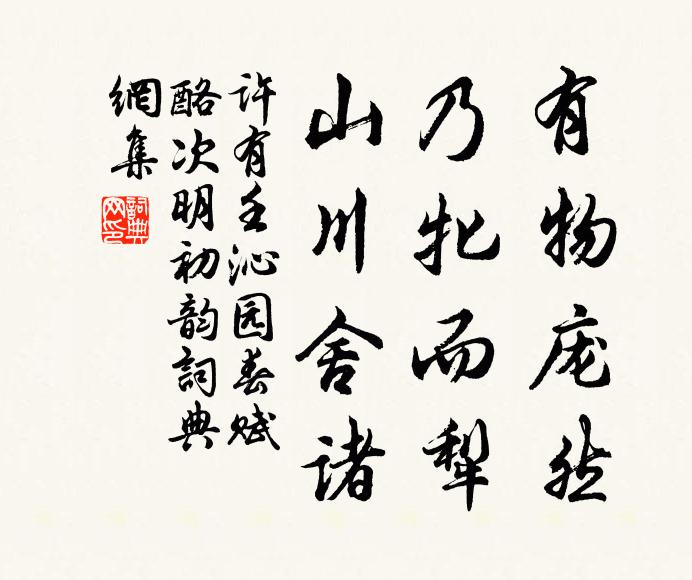 有物庞然
乃牝而犁
山川舍诸
许有壬沁园春赋
酪次明初韵詞典
網集
詞典
网印